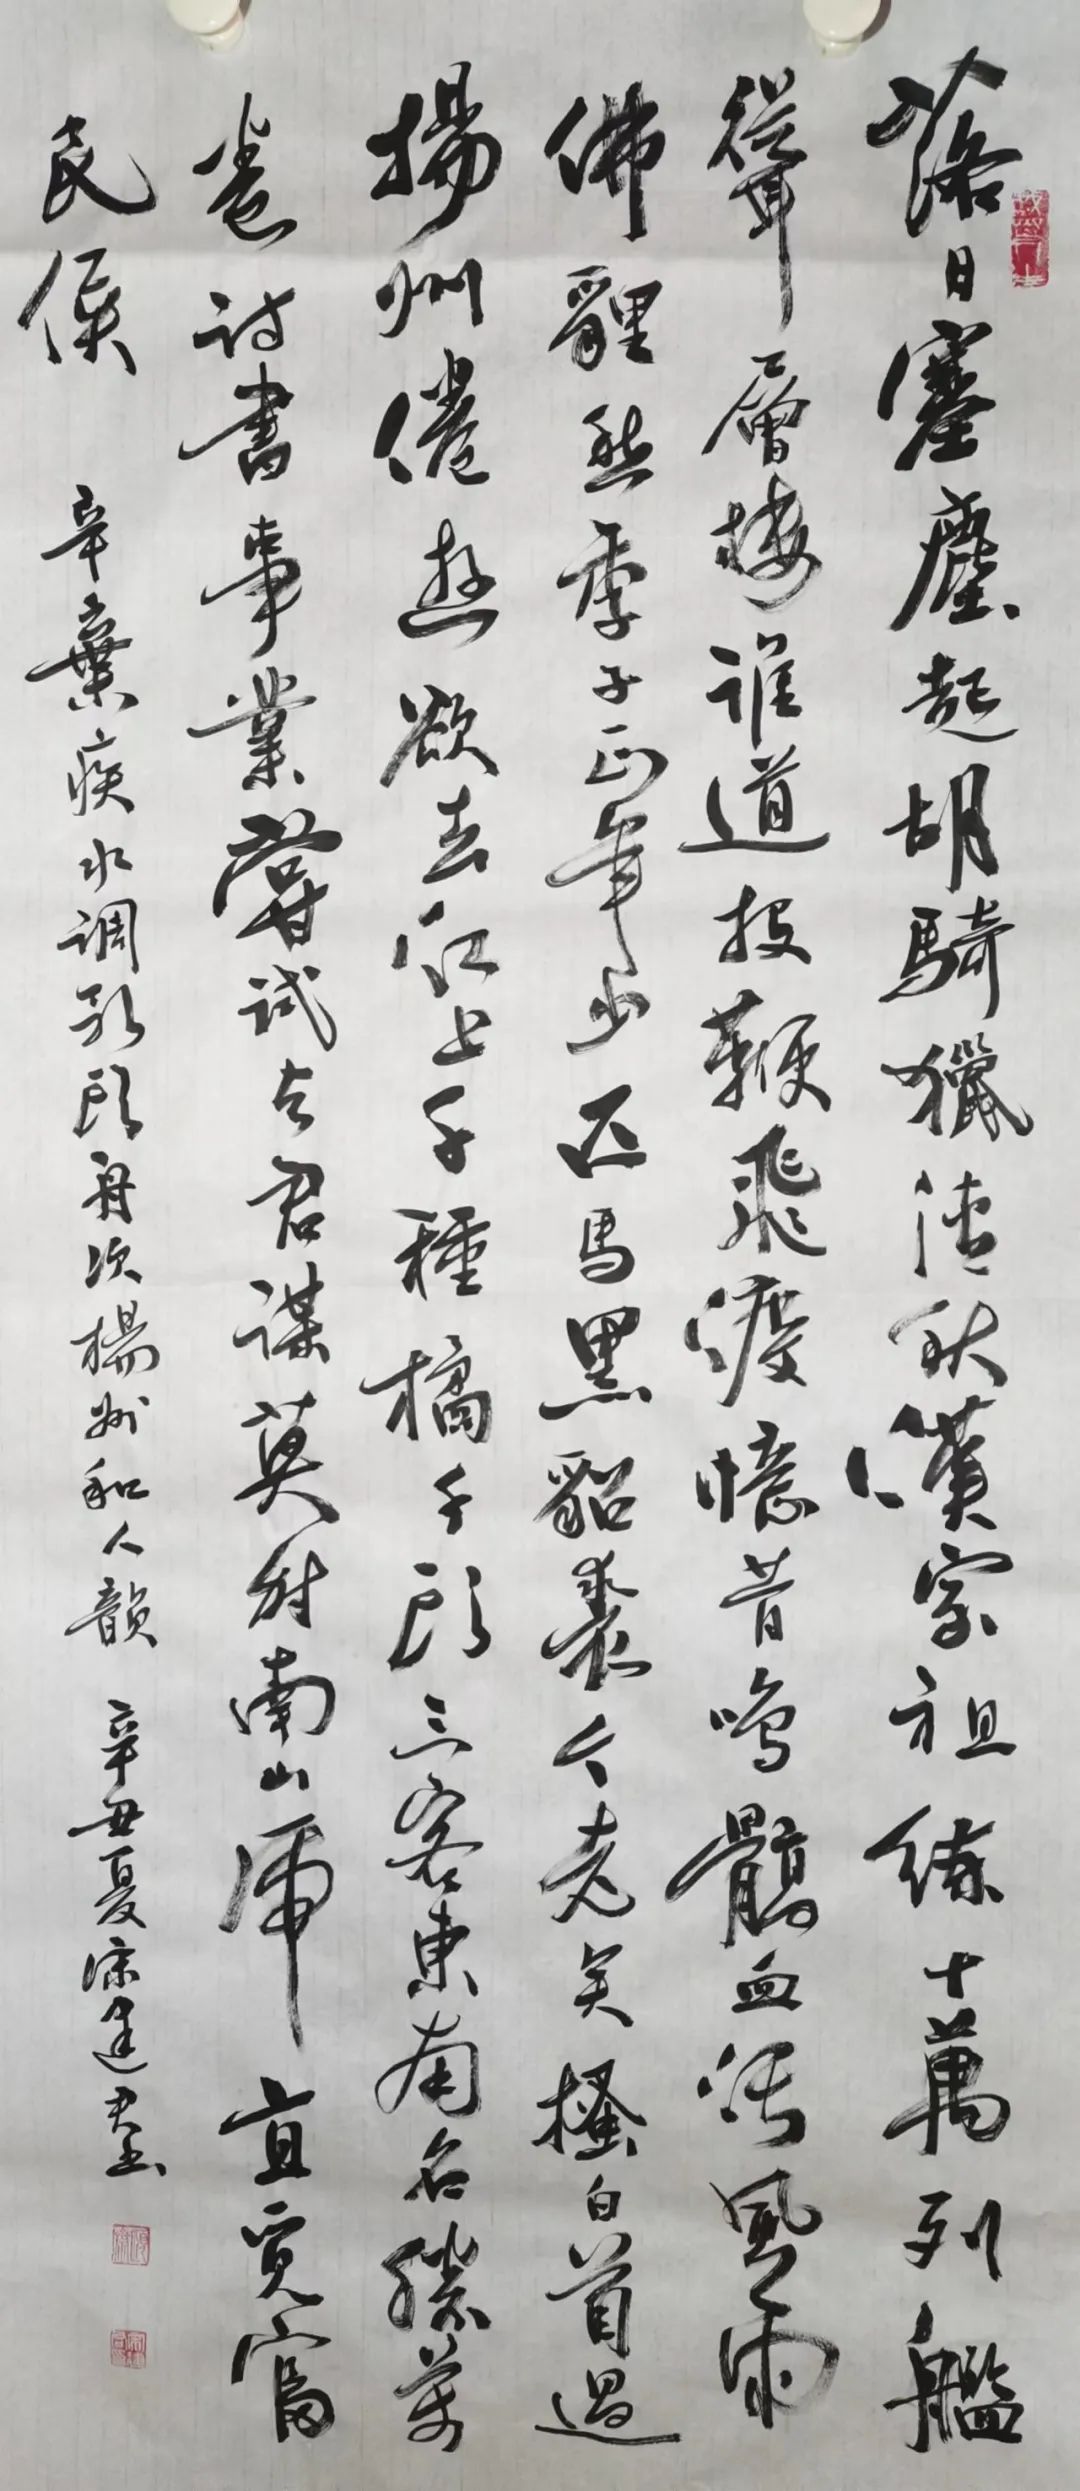 落日塞塵起胡騎獵清秋漢家祖練十萬列艦
聳層樓誰道投鞭飛渡憶昔鳴髇血污風雨
佛貍愁季子正年少匹馬黑貂裘今老矣搔白首過
揚州倦遊欲去江上手種橘千頭三客東南名勝萬
卷詩書事業嘗試與君謀莫射南山虎直覓富
民侯 辛棄疾水調歌頭舟次揚州和人韻 辛丑夏